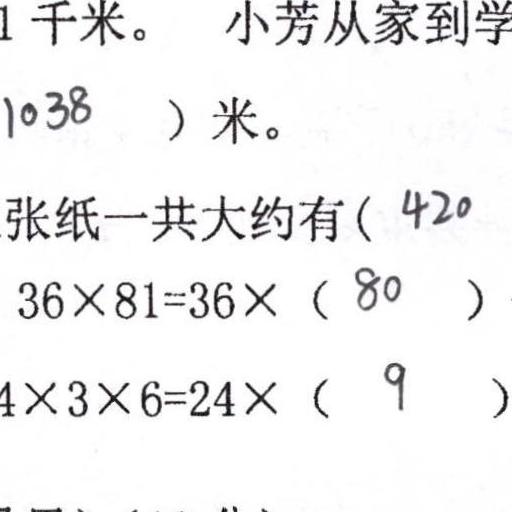 1 千米。 小芳从家到学
1038 ）米。
张纸一共大约有( 420
36×81=36×（ 80 ）
4×3×6=24×（ 9 ）